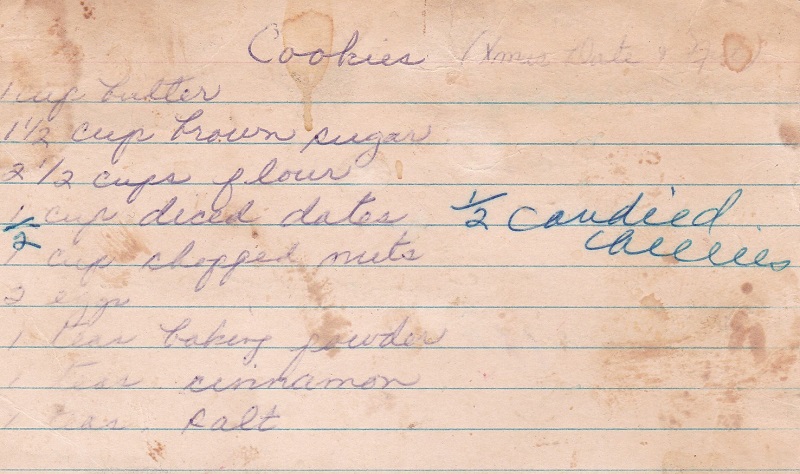 Cookies (Xmas Date
1 cup butter
1 1/2 cup brown sugar
2 1/2 cups flour
1 cup diced dates 1/2 candied cherries
1/2
1 cup chopped nuts
2 eggs
1 teas baking powder
1 teas cinnamon
1 teas salt